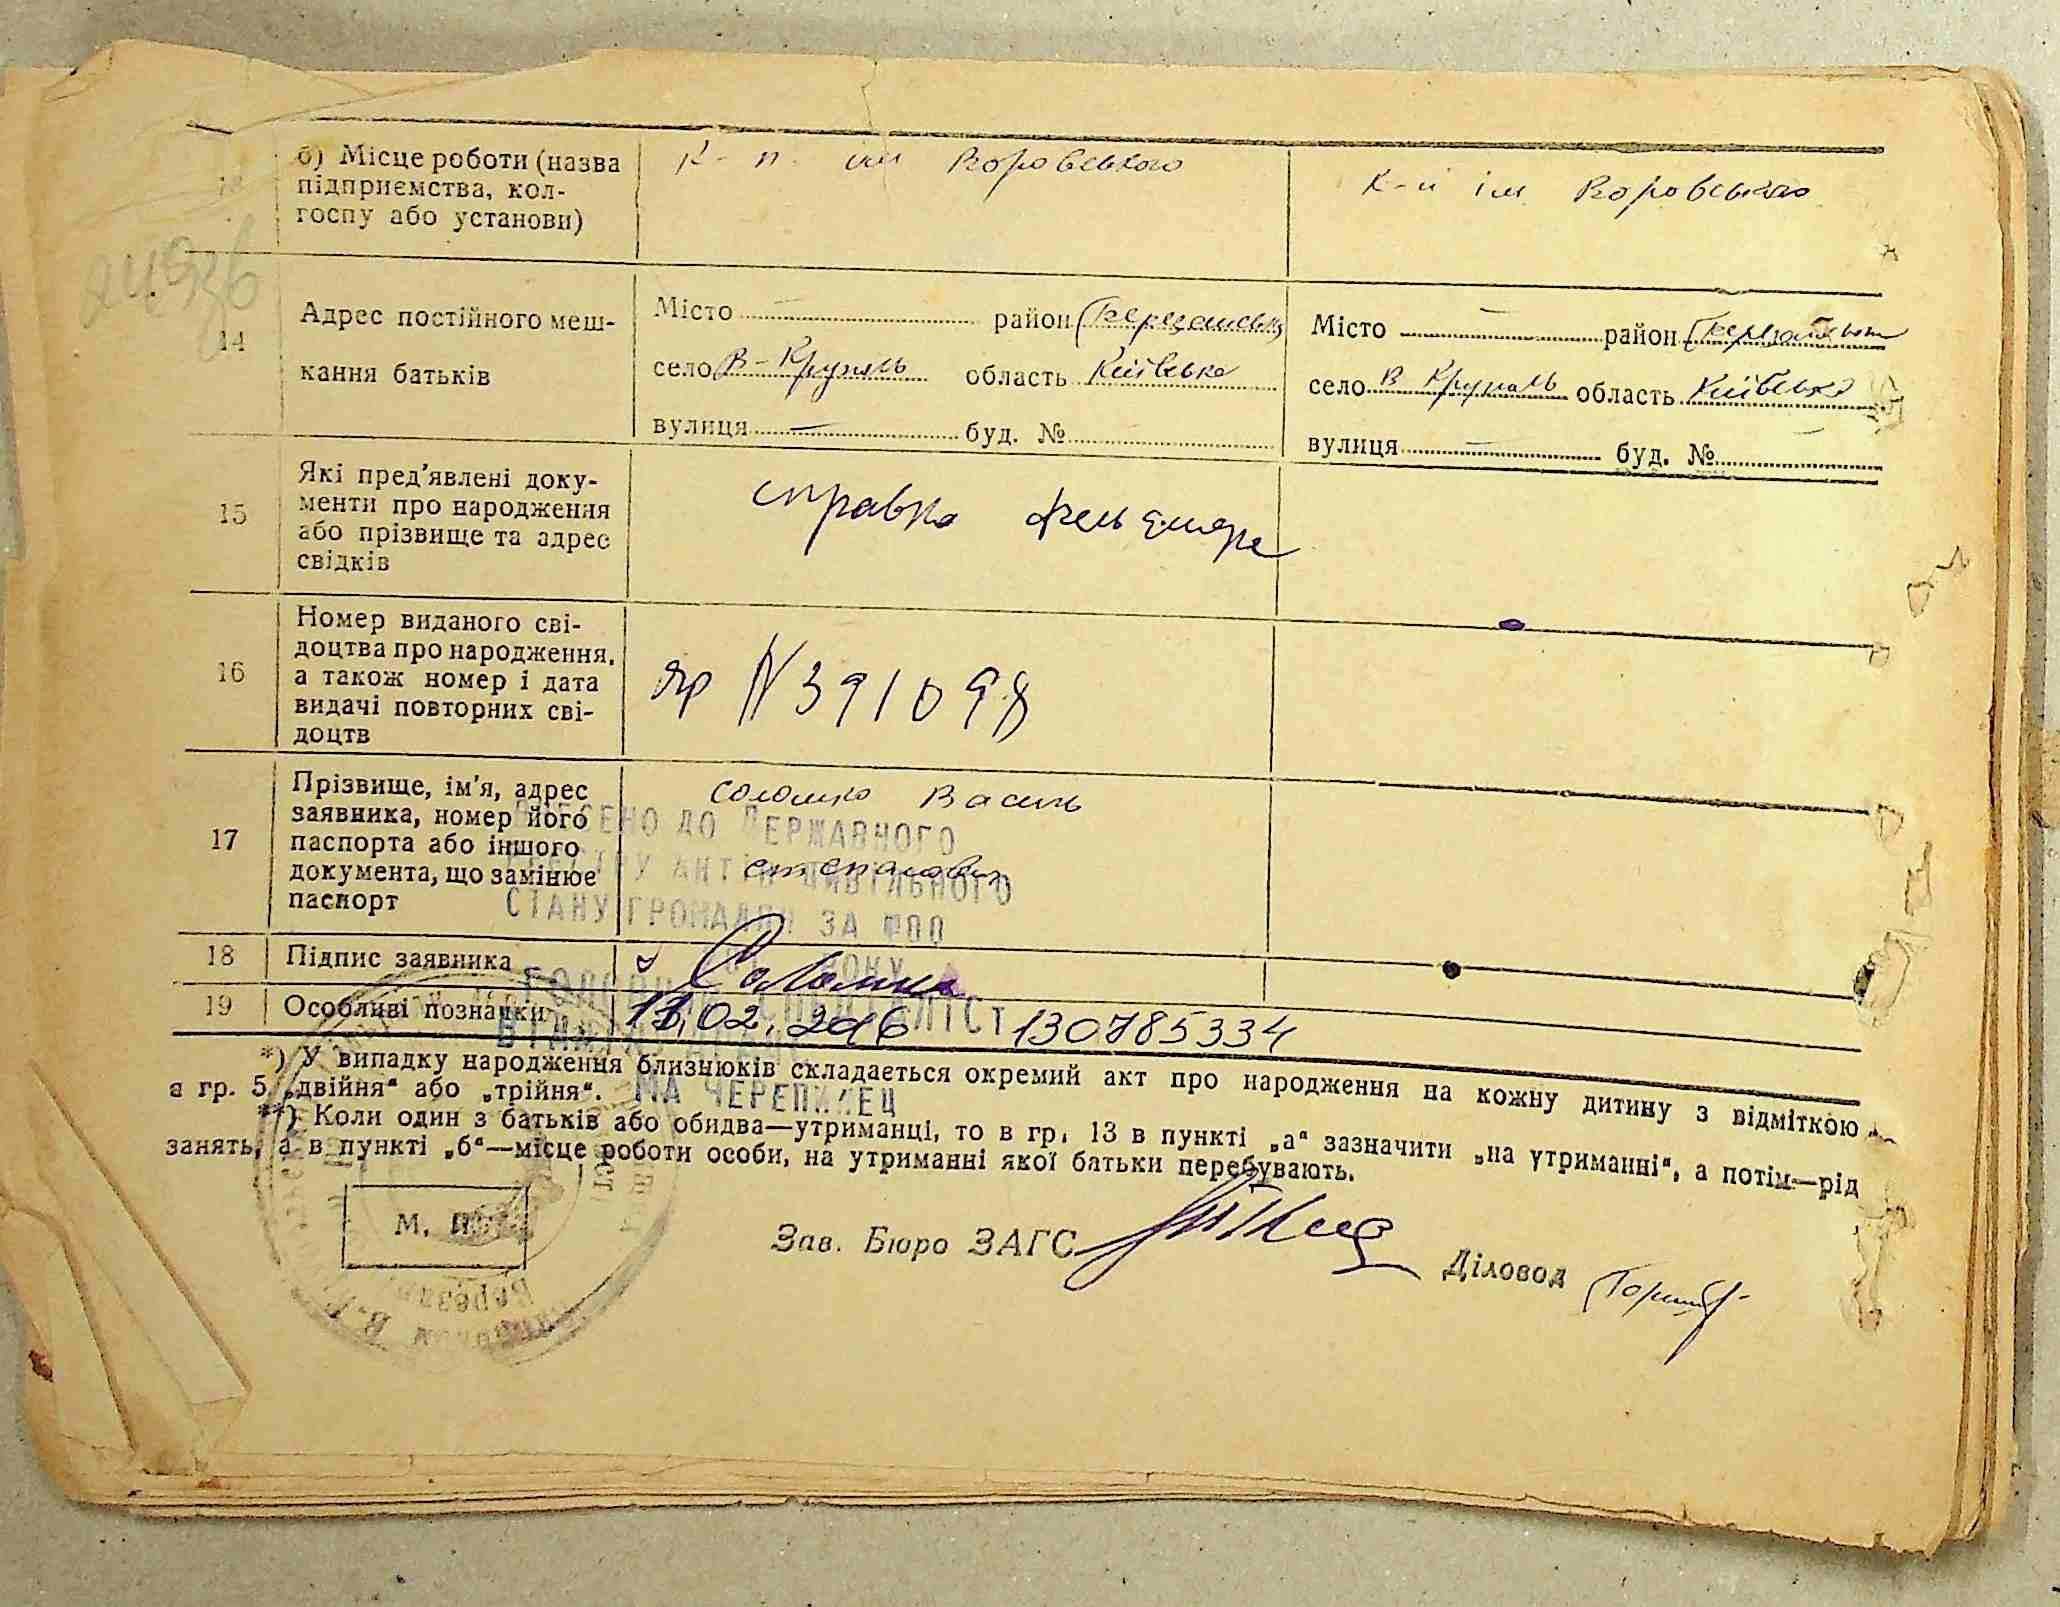 13
б) Місце роботи (назва підприємства, колгоспу або установи)
К-п ім Воровського
К-п ім Воровського
14
Адрес постійного меш-
кання батьків
Місто — район Березанськ
село В-Круполь область Київська
вулиця — буд. №
Місто — район Березанськ
село В Круполь область Київська
вулиця — буд. №
15
Які пред'явлені доку-
менти про народження
або прізвище та адрес
свідків
справка фельдшера
16
Номер виданого сві-
доцтва про народження,
а також номер і дата
видачі повторних сві-
доцтв
яр N 391098
17
Прізвище, ім'я, адрес
заявника, номер його
паспорта або іншого
документа, що замінює
паспорт
Соломко Василь
степанович
ВНЕСЕНО ДО ДЕРЖАВНОГО
РЕЄСТРУ АКТІВ ЦИВІЛЬНОГО
СТАНУ ГРОМАДЯН ЗА
РОКУ
ГОЛОВНИЙ СПЕЦІАЛІСТ
18 Підпис заявника Соломко
19 Особливі познački 11.02.2016 130785334
*) У випадку народження близнюків складається окремий акт про народження на кожну дитину з відміткою
в гр. 5 „двійня“ або „трійня“.
МА ЧЕРЕПИНЕЦ
**) Коли один з батьків або обидва—утриманці, то в гр. 13 в пункті „а“ зазначити „на утриманні“, а потім—рід
занять, а в пункті „б“—місце роботи особи, на утриманні якої батьки перебувають.
М. П.
Зав. Бюро ЗАГС
Діловод